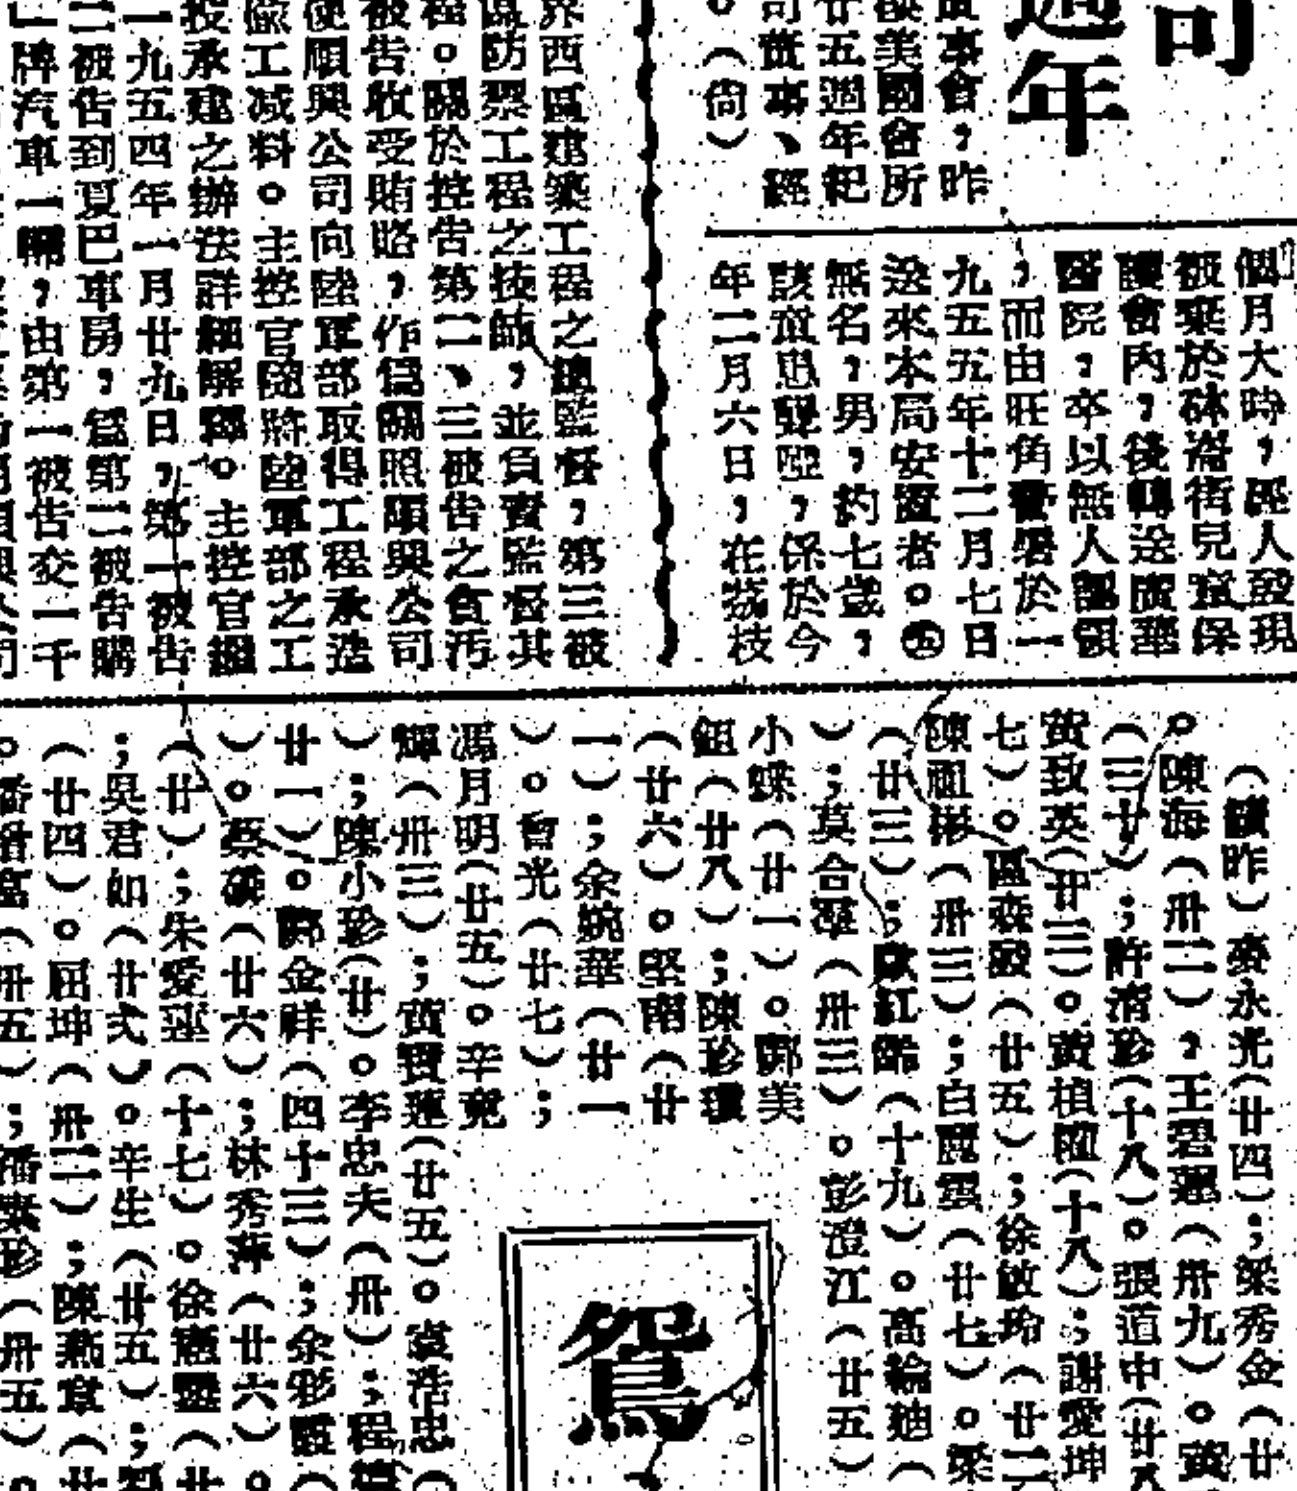 司
週年
董事會，昨
美國會所
廿五週年紀
司董事、經
。（尙）
個月大時，經人發現
被棄於砵崙街兒童保
護會內，後轉送廣華
醫院，卒以無人認領
，而由旺角警署於一
九五五年十二月七日
送來本局安置者。㊄
無名，男，約七歲，
該童患聾啞，係於今
年二月六日，在荔枝
界西區建築工程之總監督，第三被
區防禦工程之技師，並負責監督其
程。關於控告第二、三被告之貪汚
被告收受賄賂，作爲關照順興公司
使順興公司向陸軍部取得工程承造
偸工减料。主控官隨將陸軍部之工
投承建之辦法詳細解釋。主控官繼
一九五四年一月廿九日，第一被告
二被告到夏巴車房，爲第二被告購
」牌汽車一輛，由第一被告交一千
（續昨）麥永光（廿四）；梁秀金（廿
。陳海（卅二），王碧蓮（卅九）。黃
（三十）；許清珍（十八）。張道中（廿八
黃致英（廿三）。黃植（十八）；謝愛坤
七）。區森（廿五）；徐敏玲（廿二
陳祖（卅三）；白麗雲（廿七）。梁
（廿三）；歐紅（十九）。高綸廸（
）；莫合羣（卅三）。彭澄江（廿五）
小蝶（廿一）。鄭美
鈿（廿八）；陳珍瓊
（廿六）。堅南（廿
一）；余婉華（廿一
）。曾光（廿七）；
馮月明（廿五）。辛竟
輝（卅三）；黃寶蓮（廿五）。袁浩忠（
）；陳小珍（廿）。李忠夫（卅）；程
廿一）。鄭金祥（四十三）；余彩霞（
）。蔡（廿六）；林秀萍（廿六）。
（廿）；朱愛蓮（十七）。徐憲靈（廿
；吳君如（廿弍）。辛生（廿五）；
（廿四）。屈坤（卅二）；陳燕（廿
。潘（卅五）；潘素珍（卅五）。
鴛